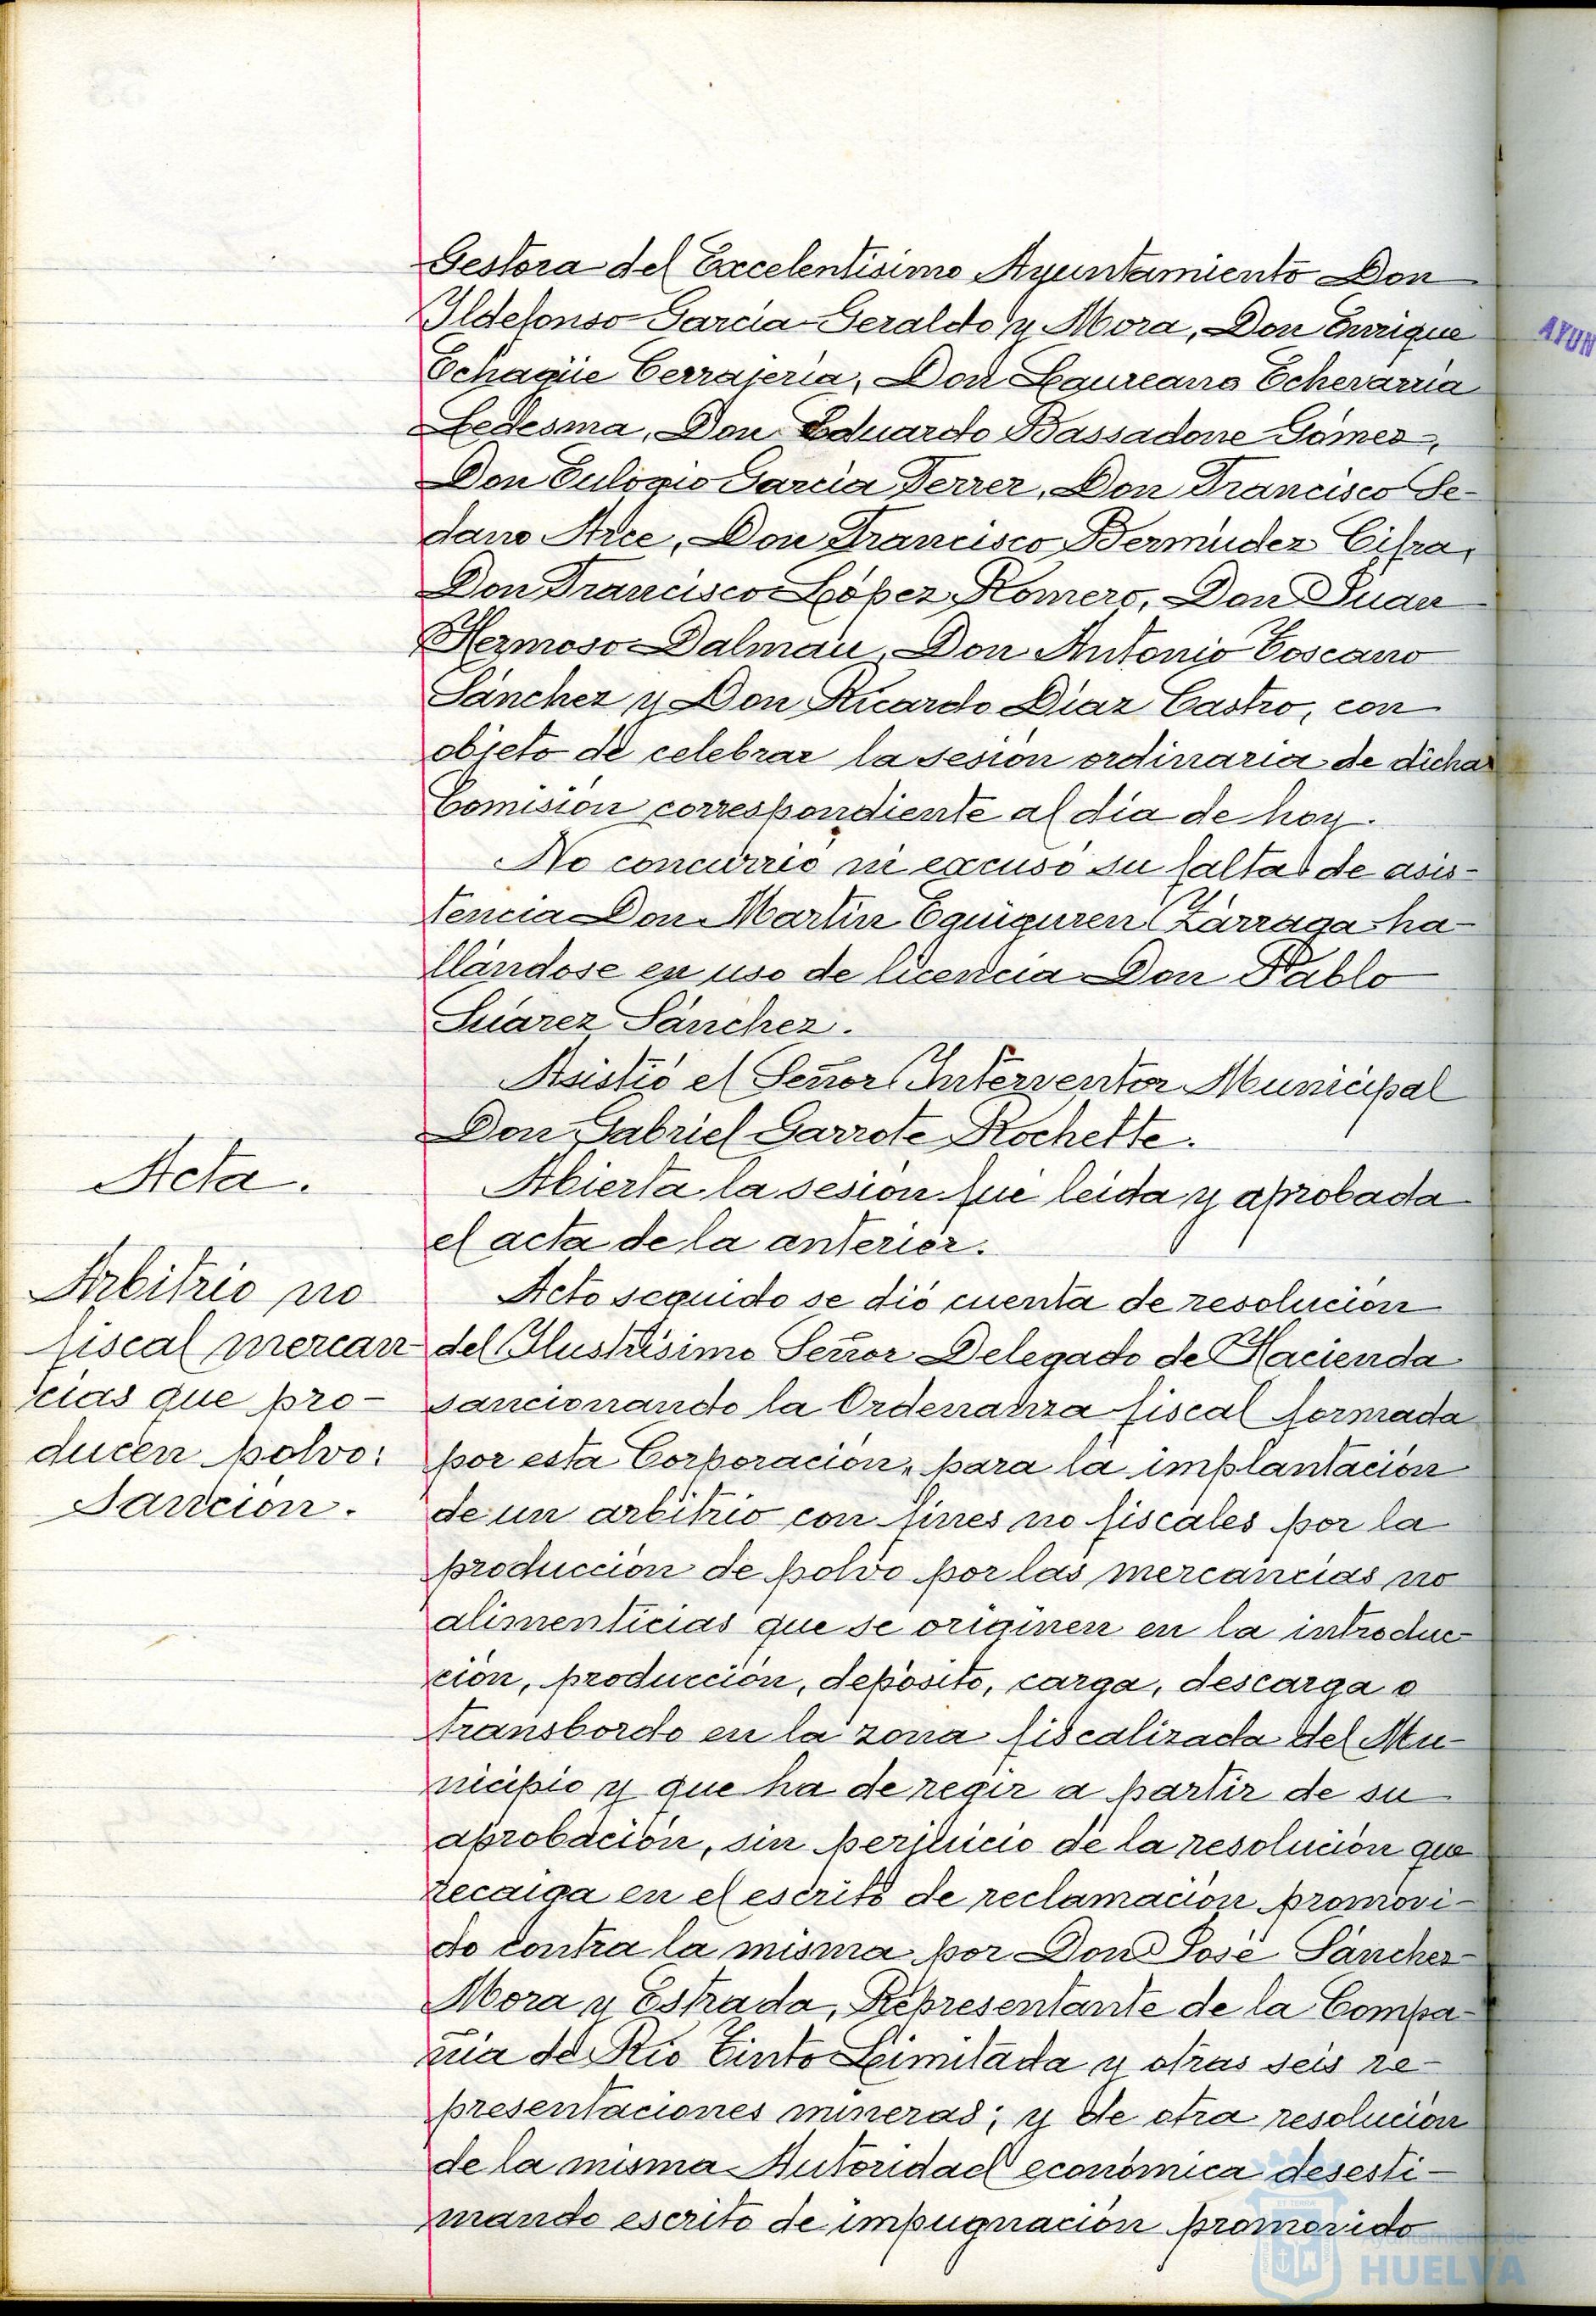 Gestora del Excelentísimo Ayuntamiento Don
Ildefonso García Geraldo y Mora, Don Enrique
Echagüe Cerrajería, Don Laureano Echevarría
Ledesma, Don Eduardo Bassadone Gómez,
Don Eulogio García Ferrer, Don Francisco Se-
dano Arce, Don Francisco Bermúdez Cifra,
Don Francisco López Romero, Don Juan
Hermoso Dalmau, Don Antonio Toscano
Sánchez y Don Ricardo Díaz Castro, con
objeto de celebrar la sesión ordinaria de dicha
Comisión correspondiente al día de hoy.
No concurrió ni excusó su falta de asis-
tencia Don Martín Eguiguren Zárraga ha-
llándose en uso de licencia Don Pablo
Suárez Sánchez.
Asistió el Señor Interventor Municipal
Don Gabriel Garrote Rochette.
Acta.
Abierta la sesión fué leida y aprobada
el acta de la anterior.
Arbitrio no
fiscal mercan
cias que pro-
ducen polvo:
Sanción.
Acto seguido se dió cuenta de resolución
del Ilustrísimo Señor Delegado de Hacienda
sancionando la Ordenanza fiscal formada
por esta Corporación, para la implantación
de un arbitrio con fines no fiscales por la
producción de polvo por las mercancías no
alimenticias que se originen en la introduc-
ción, producción, depósito, carga, descarga o
transbordo en la zona fiscalizada del Mu-
nicipio y que ha de regir a partir de su
aprobación, sin perjuicio de la resolución que
recaiga en el escrito de reclamación promovi-
do contra la misma por Don José Sánchez
Mora y Estrada, Representante de la Compa-
ñía de Río Tinto Limitada y otras seis re-
presentaciones mineras; y de otra resolución
de la misma Autoridad económica desesti-
mando escrito de impugnación promovido
AYUN
Ayuntamiento de
HUELVA